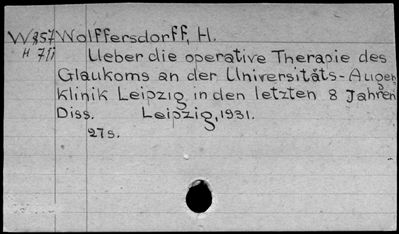 W857 Wolffersdorff, H.
H 7/1 Ueber die operative Therapie des
Glaukoms an der Universitäts-Augen
klinik Leipzig in den letzten 8 Jahren
Diss. Leipzig, 1931.
27s.